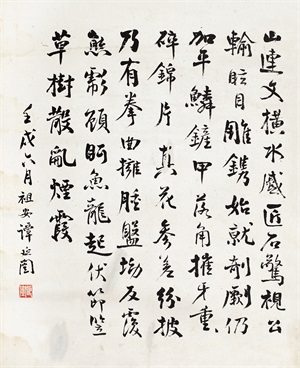 山連文橫水蹙匠石驚視公
輸眩目雕鐫始就剞劂仍
加平鱗鏟甲落角摧牙重〻
碎錦片〻真花參差紛披
乃有拳曲擁腫盤坳反覆
熊彪顧盼魚龍起伏節竪
草樹散亂煙霞
壬戌六月祖安譚延闓